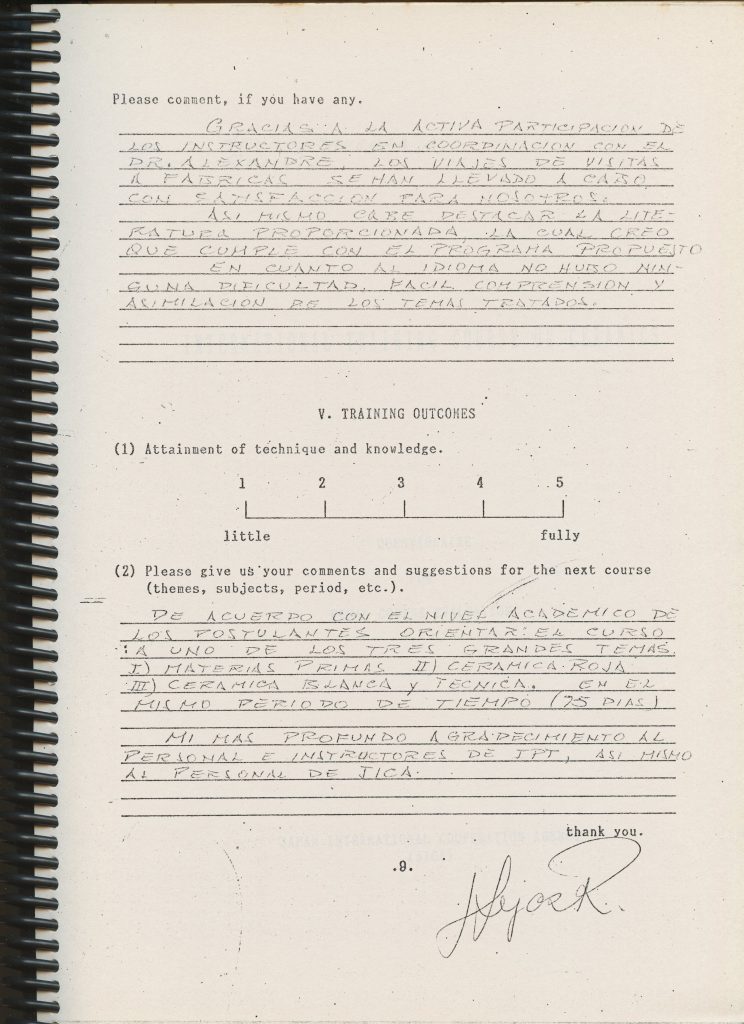 Please comment, if you have any.
GRACIAS A LA ACTIVA PARTICIPACION DE
LOS INSTRUCTORES EN COORDINACION CON EL
DR. ALEXANDRE, LOS VIAJES DE VISITAS
A FABRICAS SE HAN LLEVADO A CABO
CON SATISFACCION PARA NOSOTROS.
ASI MISMO CABE DESTACAR LA LITE-
RATURA PROPORCIONADA, LA CUAL CREO
QUE CUMPLE CON EL PROGRAMA PROPUESTO
EN CUANTO AL IDIOMA NO HUBO NIN-
GUNA DIFICULTAD, FACIL COMPRENSION Y
ASIMILACION DE LOS TEMAS TRATADOS.
V. TRAINING OUTCOMES
(1) Attainment of technique and knowledge.
1 2 3 4 5
little fully
(2) Please give us your comments and suggestions for the next course
(themes, subjects, period, etc.).
DE ACUERDO CON EL NIVEL ACADEMICO DE
LOS POSTULANTES ORIENTAR: EL CURSO
A UNO DE LOS TRES GRANDES TEMAS.
I) MATERIAS PRIMAS II) CERAMICA ROJA
III) CERAMICA BLANCA y TECNICA. EN EL
MISMO PERIODO DE TIEMPO (75 DIAS)
MI MAS PROFUNDO AGRADECIMIENTO AL
PERSONAL E INSTRUCTORES DE IPT, ASI MISMO
AL PERSONAL DE JICA.
thank you.
.9.